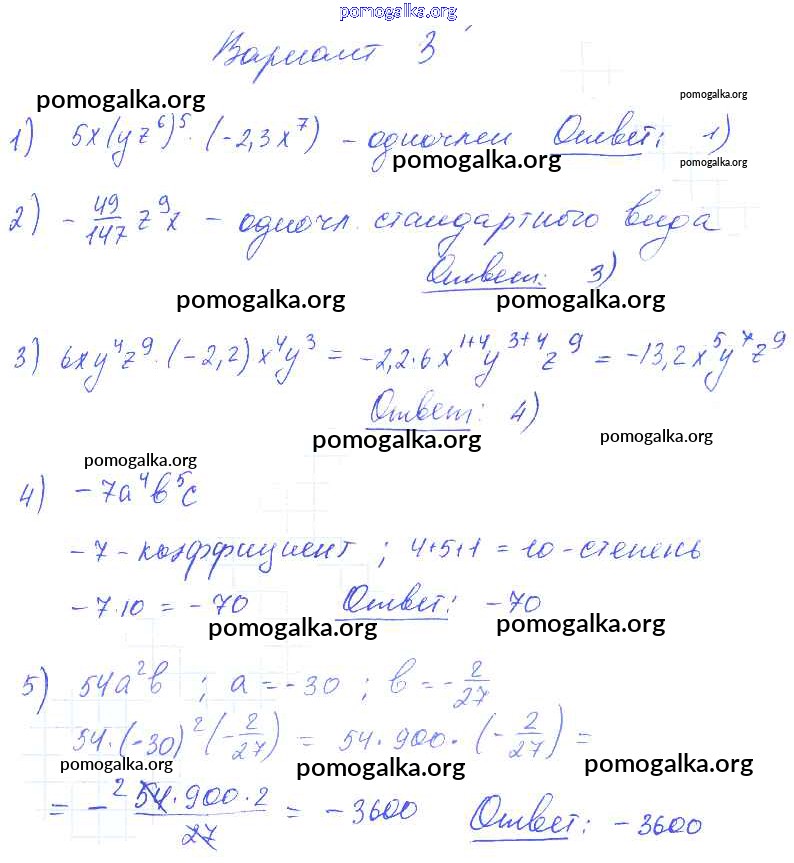 pomogalka.org
Вариант 3
pomogalka.org
pomogalka.org
1) 5x(yz⁶)⁵·(-2,3x⁷) - одночлен Ответ: 1)
pomogalka.org
pomogalka.org
2) -49/147 z⁹x - одночл. стандартного вида
Ответ: 3)
pomogalka.org pomogalka.org
3) 6xy⁴z⁹·(-2,2)x⁴y³ = -2,2·6x¹⁺⁴y³⁺⁴z⁹ = -13,2x⁵y⁷z⁹
Ответ: 4)
pomogalka.org pomogalka.org
pomogalka.org
4) -7a⁴b⁵c
-7 - коэффициент ; 4+5+1 = 10 - степень
-7·10 = -70 Ответ: -70
pomogalka.org pomogalka.org
5) 54a²b ; a = -30 ; b = -2/27
54·(-30)²(-2/27) = 54·900·(-2/27) =
pomogalka.org pomogalka.org pomogalka.org
= -² 54·900·2/27 = -3600 Ответ: -3600